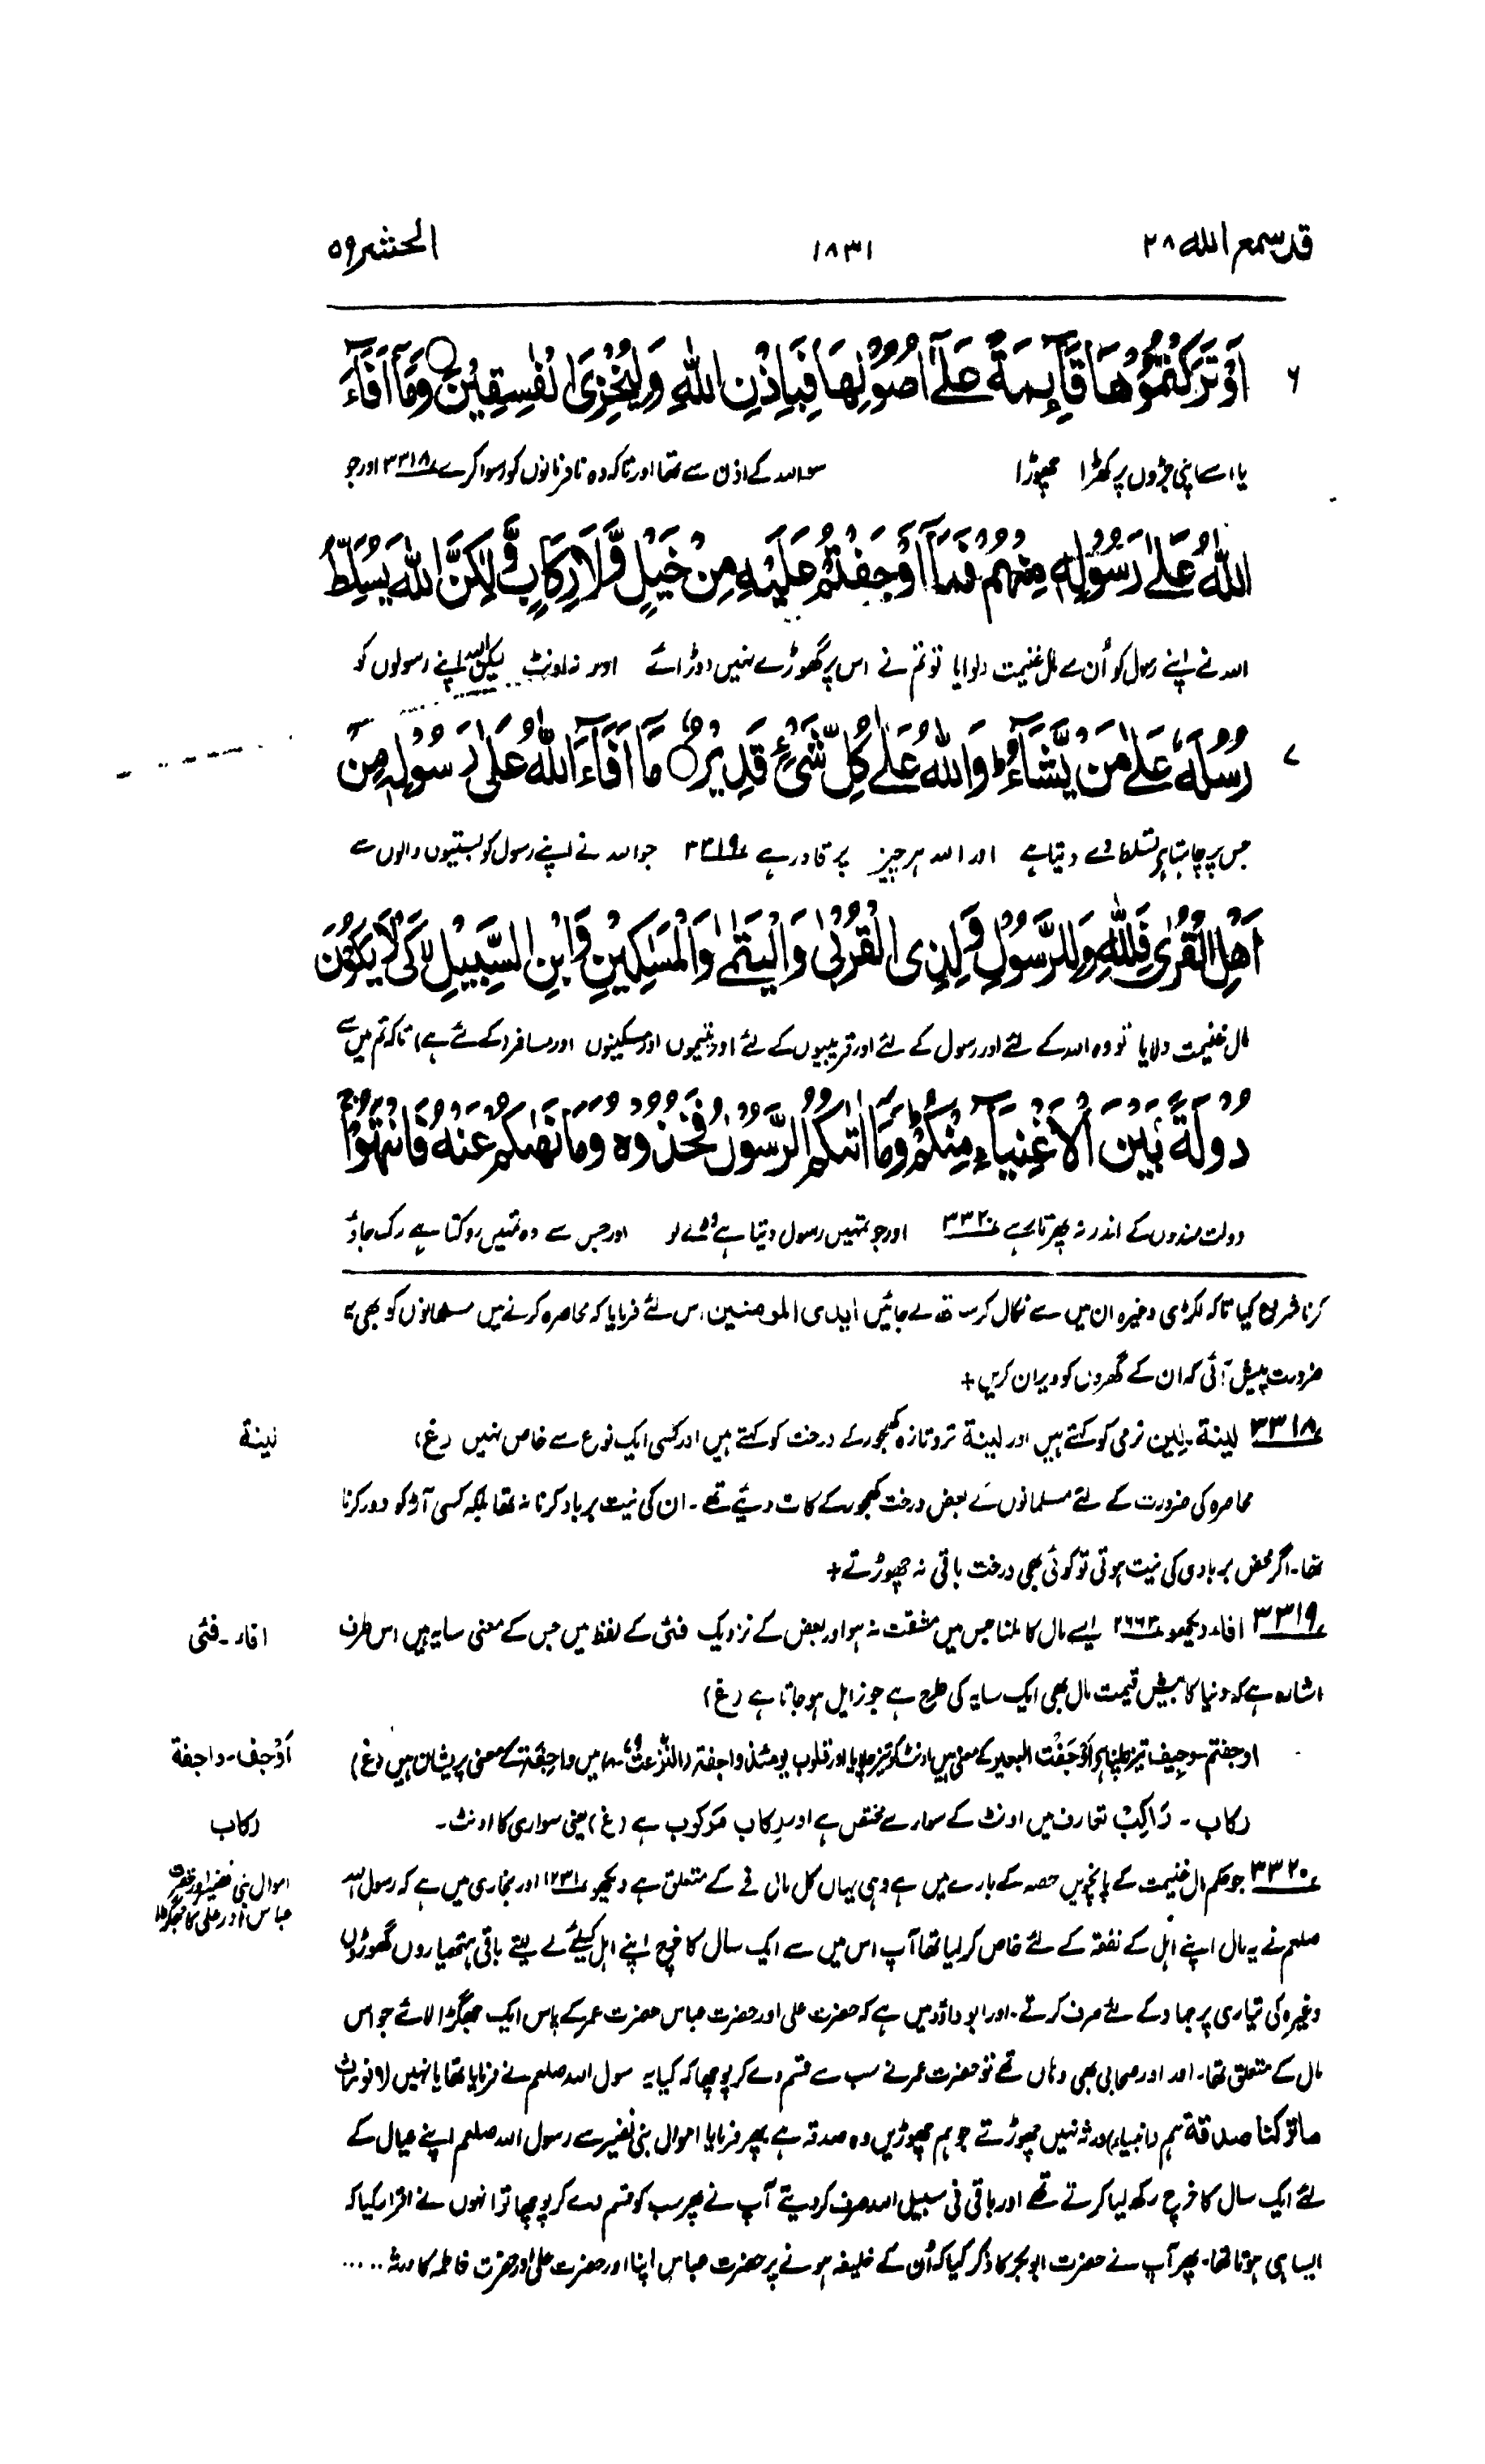 قد سمع الله ۲۸
۱۸۳۱
الحشر ۵۹
۶
اَوْ تَرَكْتُمُوْهَا قَآئِمَةً عَلٰٓى اُصُوْلِهَا فَبِاِذْنِ اللّٰهِ وَلِيُخْزِىَ الْفٰسِقِيْنَ ○ وَمَآ اَفَآءَ
یا اسے اپنی جڑوں پر کھڑا چھوڑا سو اللہ کے اذن سے تھا اور تاکہ وہ نافرمانوں کو رسوا کرے ۳۳۱۸ اور جو
اللّٰهُ عَلٰى رَسُوْلِهٖ مِنْهُمْ فَمَآ اَوْجَفْتُمْ عَلَيْهِ مِنْ خَيْلٍ وَّلَا رِكَابٍ وَّلٰكِنَّ اللّٰهَ يُسَلِّطُ
اللہ نے اپنے رسول کو اُن سے مال غنیمت دلوایا تو تم نے اس پر گھوڑے نہیں دوڑائے اور نہ اونٹ لیکن اللہ اپنے رسولوں کو
۷
رُسُلَهٗ عَلٰى مَنْ يَّشَآءُ ۭ وَاللّٰهُ عَلٰى كُلِّ شَىْءٍ قَدِيْرٌ ○ مَآ اَفَآءَ اللّٰهُ عَلٰى رَسُوْلِهٖ مِنْ
جس پر چاہتا ہے تسلط دے دیتا ہے اور اللہ ہر چیز پر قادر ہے ۳۳۱۹ جو اللہ نے اپنے رسول کو بستیوں والوں سے
اَهْلِ الْقُرٰى فَلِلّٰهِ وَلِلرَّسُوْلِ وَلِذِى الْقُرْبٰى وَالْيَتٰمٰى وَالْمَسٰكِيْنِ وَابْنِ السَّبِيْلِ ۙ كَىْ لَا يَكُوْنَ
مال غنیمت دلایا تو وہ اللہ کے لئے اور رسول کے لئے اور قریبیوں کے لئے اور یتیموں اور مسکینوں اور مسافر کے لئے ہے) تاکہ تم میں سے
دُوْلَةًۢ بَيْنَ الْاَغْنِيَآءِ مِنْكُمْ ۭ وَمَآ اٰتٰىكُمُ الرَّسُوْلُ فَخُذُوْهُ وَمَا نَهٰىكُمْ عَنْهُ فَانْتَهُوْا
دولت مندوں کے اندر نہ پھرتا رہے ۳۳۲۰ اور جو تمہیں رسول دیتا ہے وہ لے لو اور جس سے وہ تمہیں روکتا ہے رک جاؤ
کرنا شروع کیا تاکہ لکڑی وغیرہ ان میں سے نکال کر ساتھ لے جائیں ایدی المومنین اس لئے فرمایا کہ محاصرہ کرنے میں مسلمانوں کو بھی یہ
ضرورت پیش آئی کہ ان کے گھروں کو ویران کریں +
۳۳۱۸ لینة۔ لِین نرمی کو کہتے ہیں اور لینة تروتازہ کھجور کے درخت کو کہتے ہیں اور کسی ایک نوع سے خاص نہیں (غ)
لینة
محاصرہ کی ضرورت کے لئے مسلمانوں نے بعض درخت کھجور کے کاٹ دیئے تھے۔ ان کی نیت برباد کرنا نہ تھا بلکہ کسی آڑ کو دور کرنا
تھا۔ اگر محض بربادی کی نیت ہوتی تو کوئی بھی درخت باقی نہ چھوڑتے +
۳۳۱۹ افاء دیکھو ۲۶۶۳ ایسے مال کا ملنا جس میں مشقت نہ ہو اور بعض کے نزدیک فئی کے لفظ میں جس کے معنی سایہ ہیں اس طرف
افاء۔ فئی
اشارہ ہے کہ دنیا کا بیش قیمت مال بھی ایک سایہ کی طرح ہے جو زایل ہو جاتا ہے (غ)
اوجفتم۔ وجیف تیز چلنا ہے اَوْجَفْتُ البعیر کے معنی ہیں اونٹ کو تیز چلایا اور قلوب یومئذ واجفة (النّٰزعٰت ۔ ۸) میں واجفة کے معنی پریشان ہیں (غ)
اَوْجف۔ واجفة
رکاب۔ رَاکِبْ تعارف میں اونٹ کے سوار سے مختص ہے اور رِکاب مرکوب ہے (غ) یعنی سواری کا اونٹ۔
رکاب
۳۳۲۰ جو حکم مال غنیمت کے پانچویں حصہ کے بارے میں ہے وہی یہاں کل مال فے کے متعلق ہے دیکھو ۱۲۳۱ اور بخاری میں ہے کہ رسول اللہ
اموال بنی نضیر اور حضرت
عباس اور علی کا جھگڑا
صلعم نے یہ مال اپنے اہل کے نفقہ کے لئے خاص کر لیا تھا آپ اس میں سے ایک سال کا خرچ اپنے اہل کیلئے لے لیتے باقی ہتھیاروں گھوڑوں
وغیرہ کی تیاری پر جہاد کے لئے صرف کرتے۔ اور ابو داؤد میں ہے کہ حضرت علی اور حضرت عباس حضرت عمر کے پاس ایک جھگڑا لائے جو اس
مال کے متعلق تھا۔ اور اور صحابی بھی وہاں تھے تو حضرت عمر نے سب سے قسم دے کر پوچھا کہ کیا یہ رسول اللہ صلعم نے فرمایا تھا یا نہیں (لا نورث
ما ترکنا صدقة ہم (انبیاء) ورثہ نہیں چھوڑتے جو ہم چھوڑیں وہ صدقہ ہے پھر فرمایا اموال بنی نضیر سے رسول اللہ صلعم اپنے عیال کے
لئے ایک سال کا خرچ رکھ لیا کرتے تھے اور باقی فی سبیل اللہ صرف کر دیتے آپ نے پھر سب کو قسم دے کر پوچھا تو انہوں نے اقرار کیا کہ
ایسا ہی ہوتا تھا۔ پھر آپ نے حضرت ابوبکر کا ذکر کیا کہ اُن کے خلیفہ ہونے پر حضرت عباس اپنا اور حضرت علی اور حضرت فاطمہ کا ورثہ .....